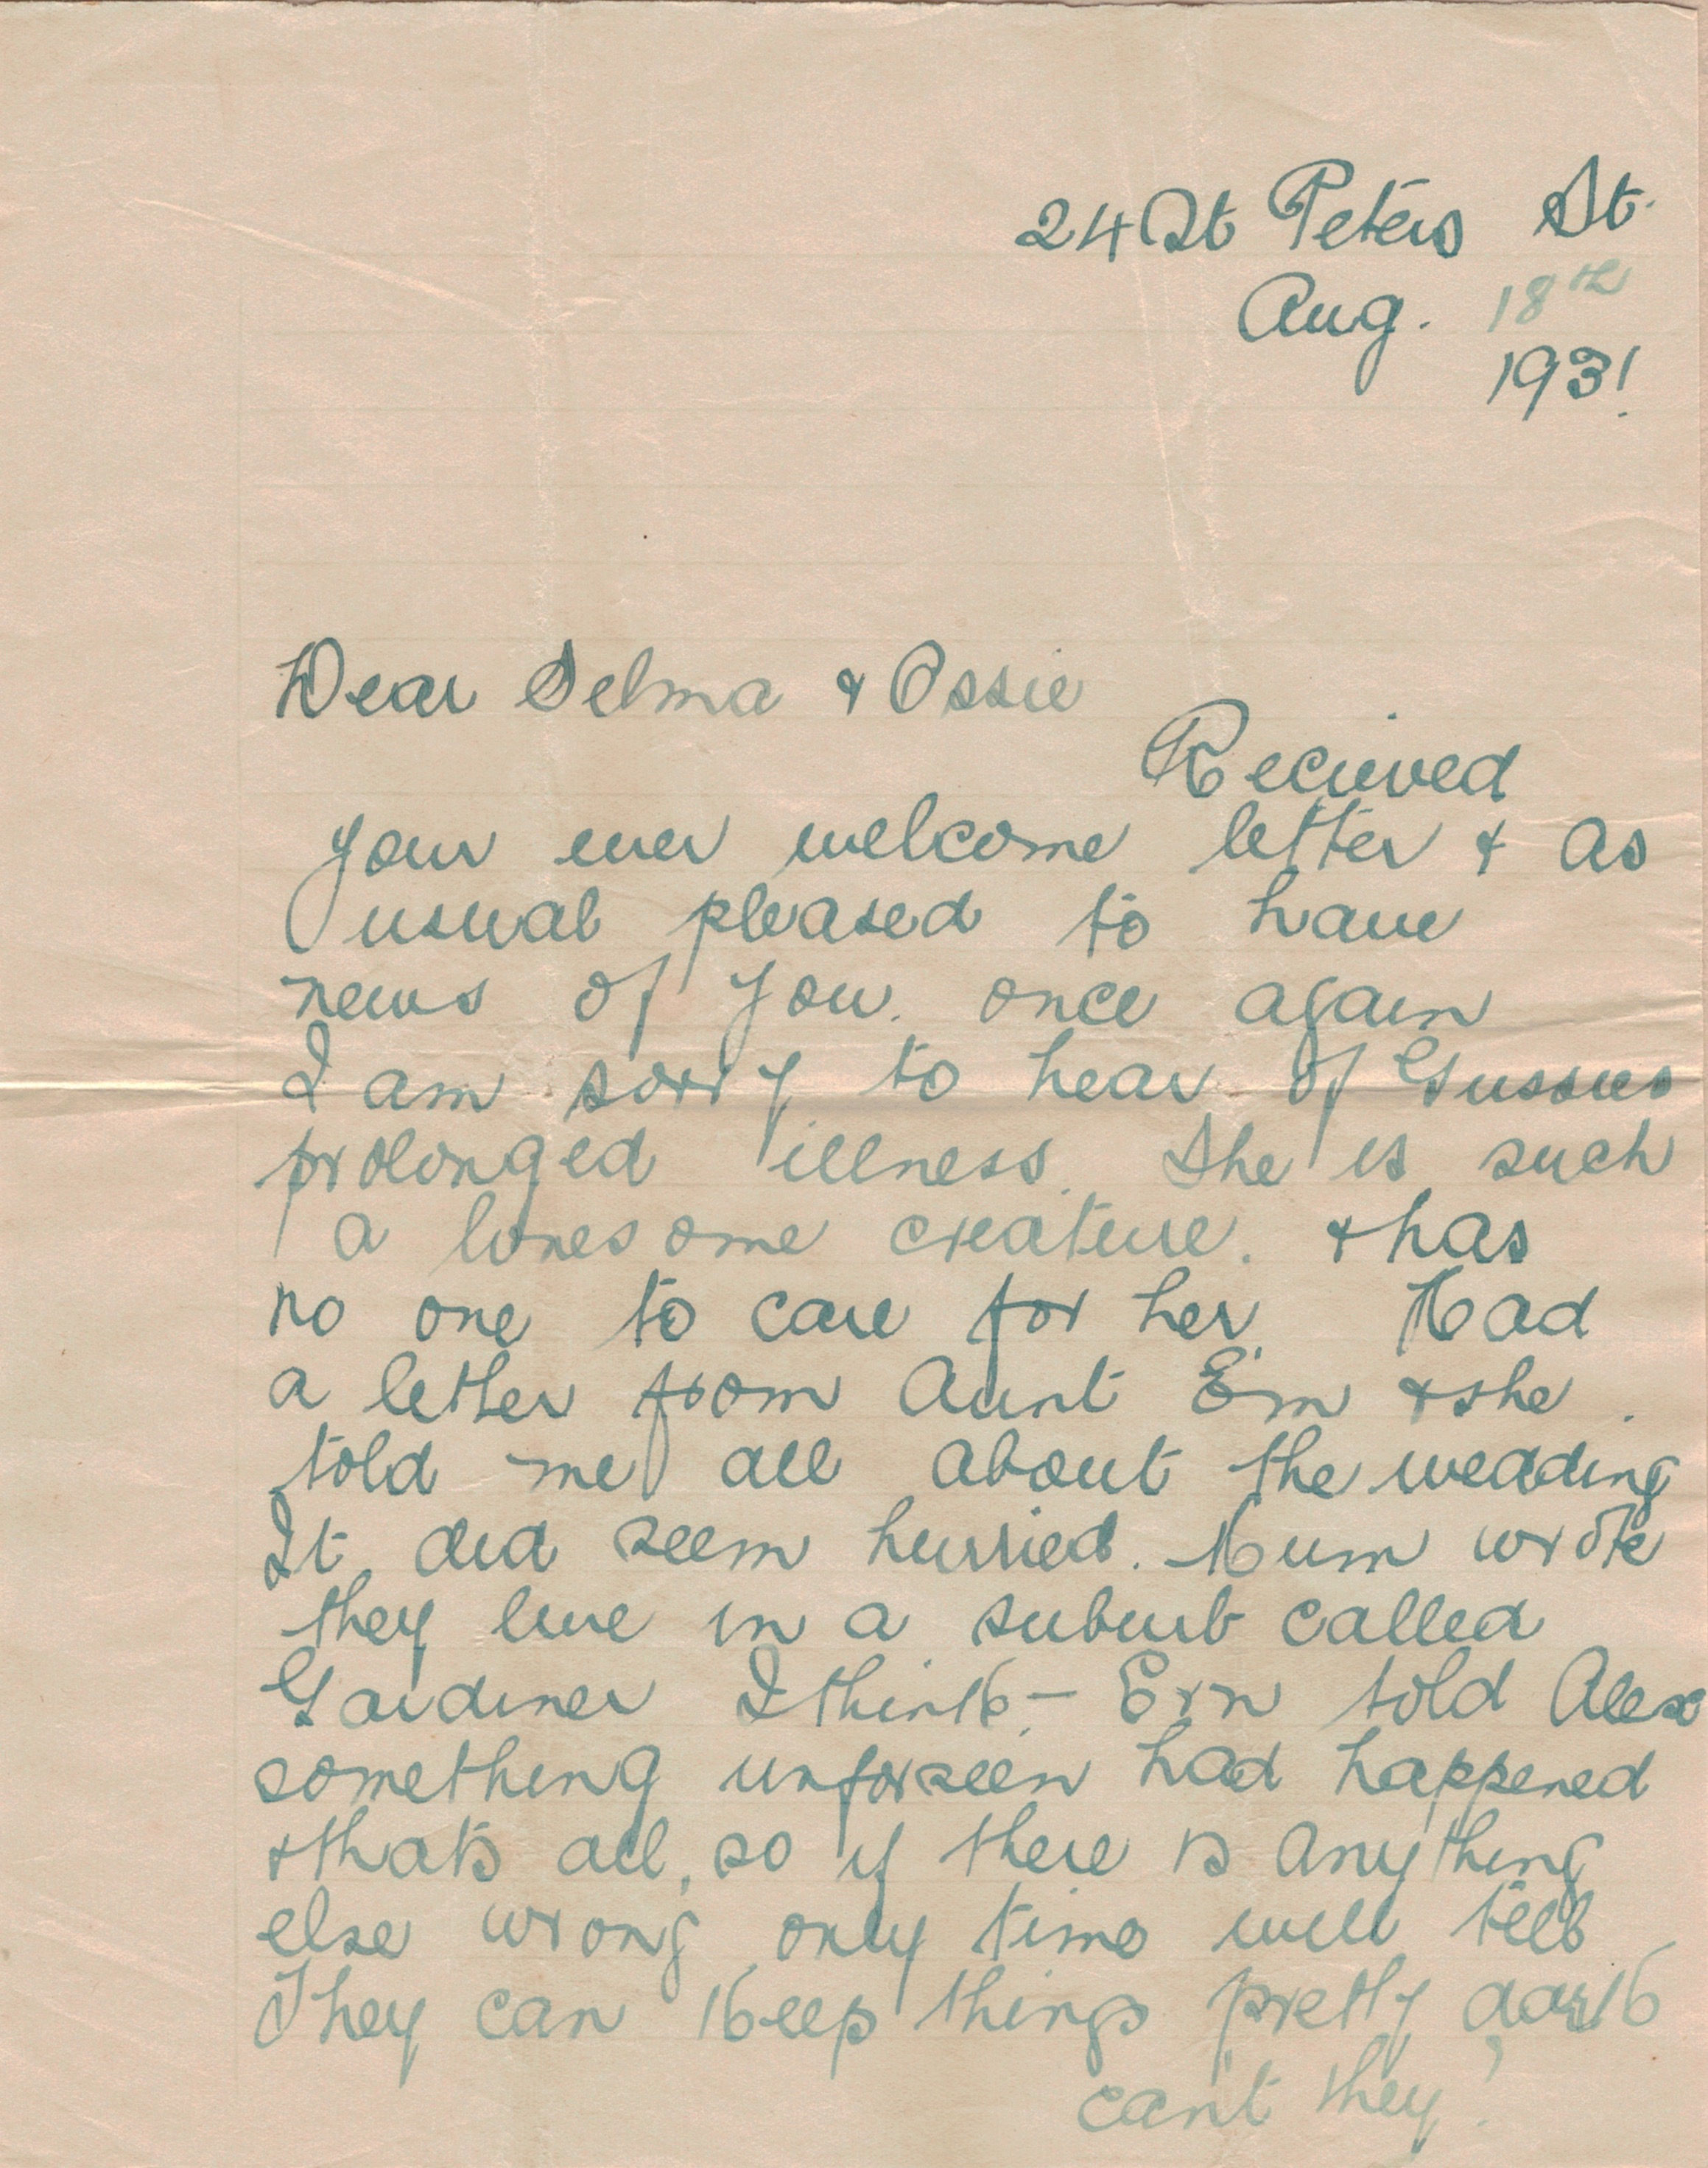 24 St Peters St.
Aug. 18th
1931.
Dear Selma & Ossie
Recieved
your ever welcome letter & as
usual pleased to have
news of you. once again
I am sorry to hear of Gussies
prolonged illness. She is such
a lonesome creature. & has
no one to care for her. Had
a letter from Aunt Em & she.
told me all about the wedding
It did seem hurried. Mum wrote
they live in a suburb called
Gardiner I think – Ern told Alex
something unforseen had happened
& thats all, so if there is anything
else wrong only time will tell
They can keep things pretty dark
can't they?